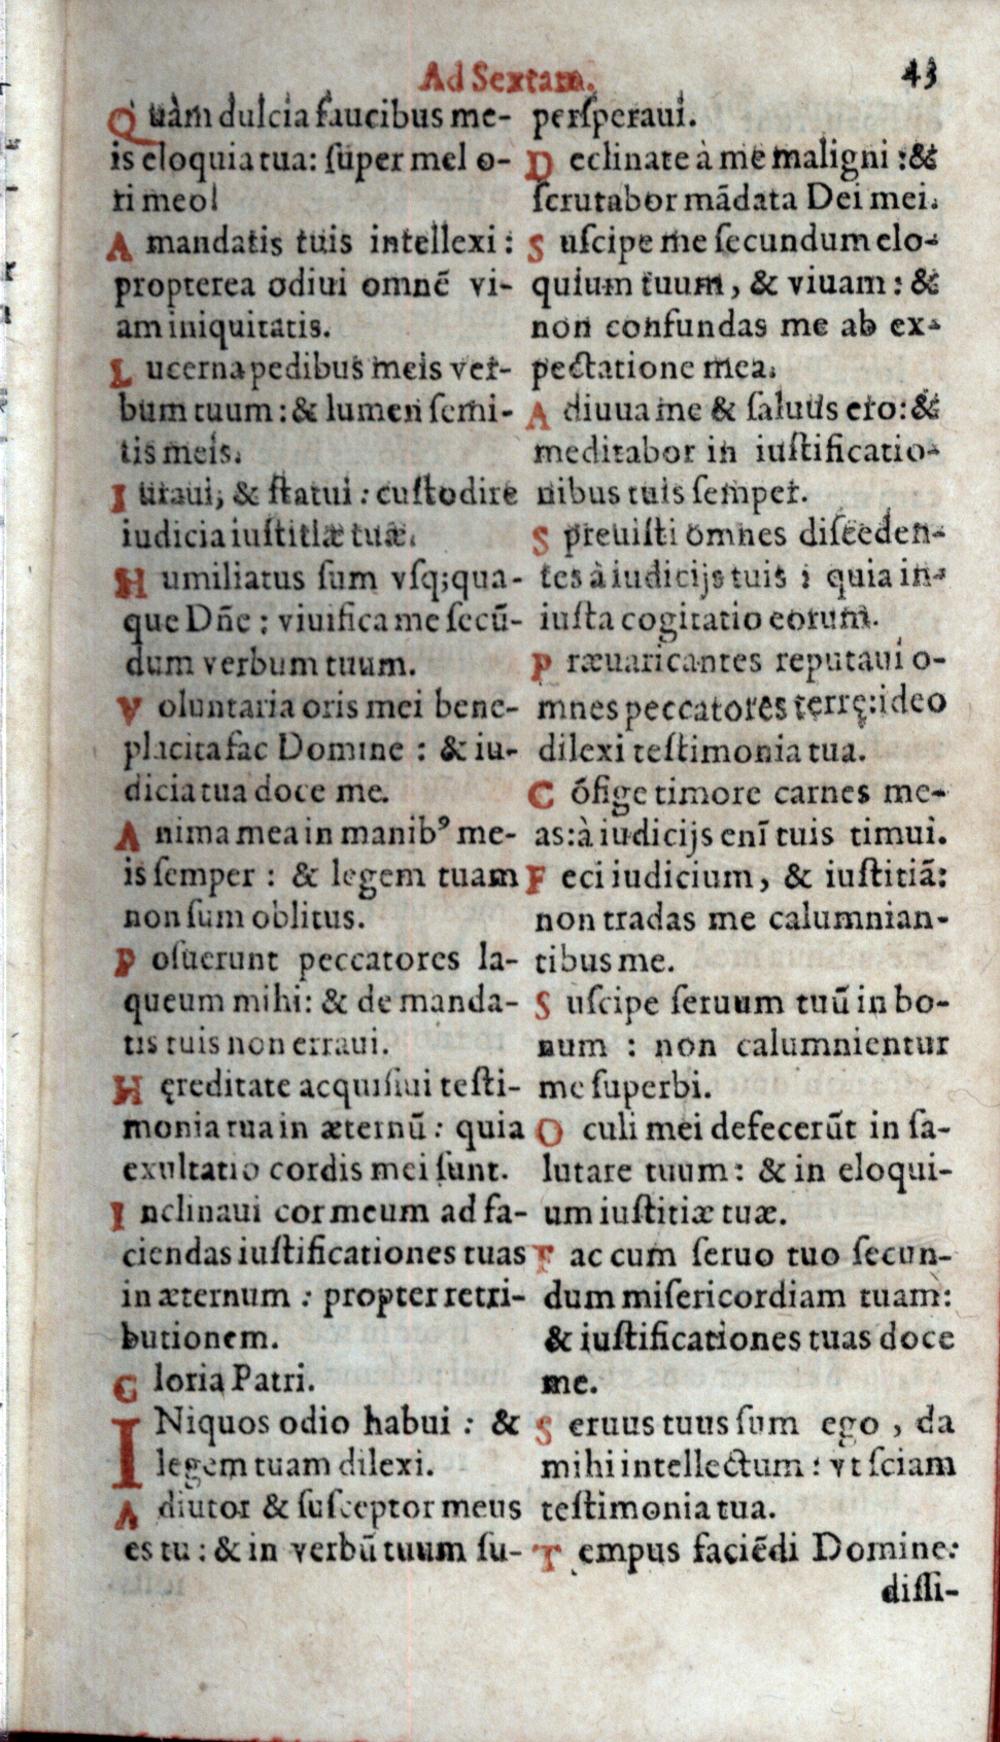 Ad Sextam.
43
Quàm dulcia faucibus me-
is eloquia tua: ſuper mel o-
ri meo!
A mandatis tuis intellexi:
propterea odiui omnē vi-
am iniquitatis.
Lucerna pedibus meis ver-
bum tuum: & lumen ſemi-
tis meis.
Iuraui, & ſtatui: cuſtodire
iudicia iuſtitiæ tuæ.
Humiliatus ſum vſq; qua-
que Dn̄e: viuifica me ſecū-
dum verbum tuum.
Voluntaria oris mei bene-
placita fac Domine: & iu-
dicia tua doce me.
Anima mea in manibꝰ me-
is ſemper: & legem tuam
non ſum oblitus.
Poſuerunt peccatores la-
queum mihi: & de manda-
tis tuis non erraui.
Hęreditate acquiſiui teſti-
monia tua in æternū: quia
exultatio cordis mei ſunt.
Inclinaui cor meum ad fa-
ciendas iuſtificationes tuas
in æternum: propter retri-
butionem.
Gloria Patri.
INiquos odio habui: &
legem tuam dilexi.
Adiutor & ſuſceptor meus
es tu: & in verbū tuum ſu-
perſperaui.
Declinate à me maligni: &
ſcrutabor mādata Dei mei.
Suſcipe me ſecundum elo-
quium tuum, & viuam: &
non confundas me ab ex-
pectatione mea.
Adiuua me & ſaluus ero: &
meditabor in iuſtificatio-
nibus tuis ſemper.
Spreuiſti omnes diſceden-
tes à iudicijs tuis: quia in-
iuſta cogitatio eorum.
Præuaricantes reputaui o-
mnes peccatores terrę: ideo
dilexi teſtimonia tua.
Cōfige timore carnes me-
as: à iudicijs enī tuis timui.
Feci iudicium, & iuſtitiā:
non tradas me calumnian-
tibus me.
Suſcipe ſeruum tuū in bo-
num: non calumnientur
me ſuperbi.
Oculi mei defecerūt in ſa-
lutare tuum: & in eloqui-
um iuſtitiæ tuæ.
Fac cum ſeruo tuo ſecun-
dum miſericordiam tuam:
& iuſtificationes tuas doce
me.
Seruus tuus ſum ego, da
mihi intellectum: vt ſciam
teſtimonia tua.
Tempus faciēdi Domine:
diſſi-